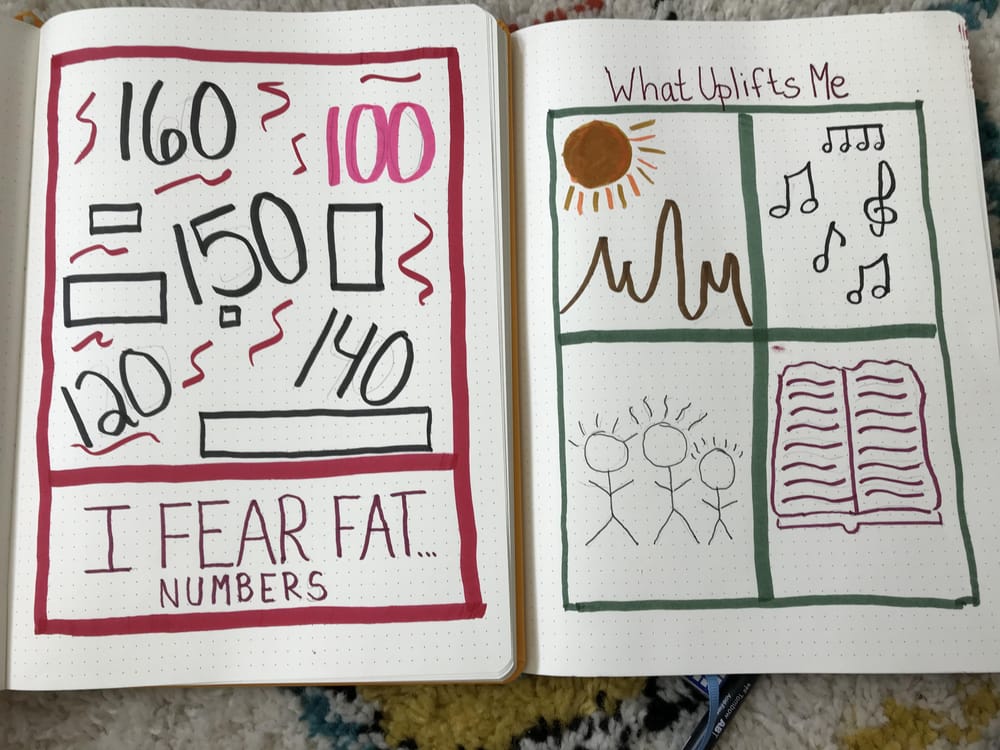 160
100
150
140
120
I FEAR FAT...
NUMBERS
What Uplifts Me
Tombow